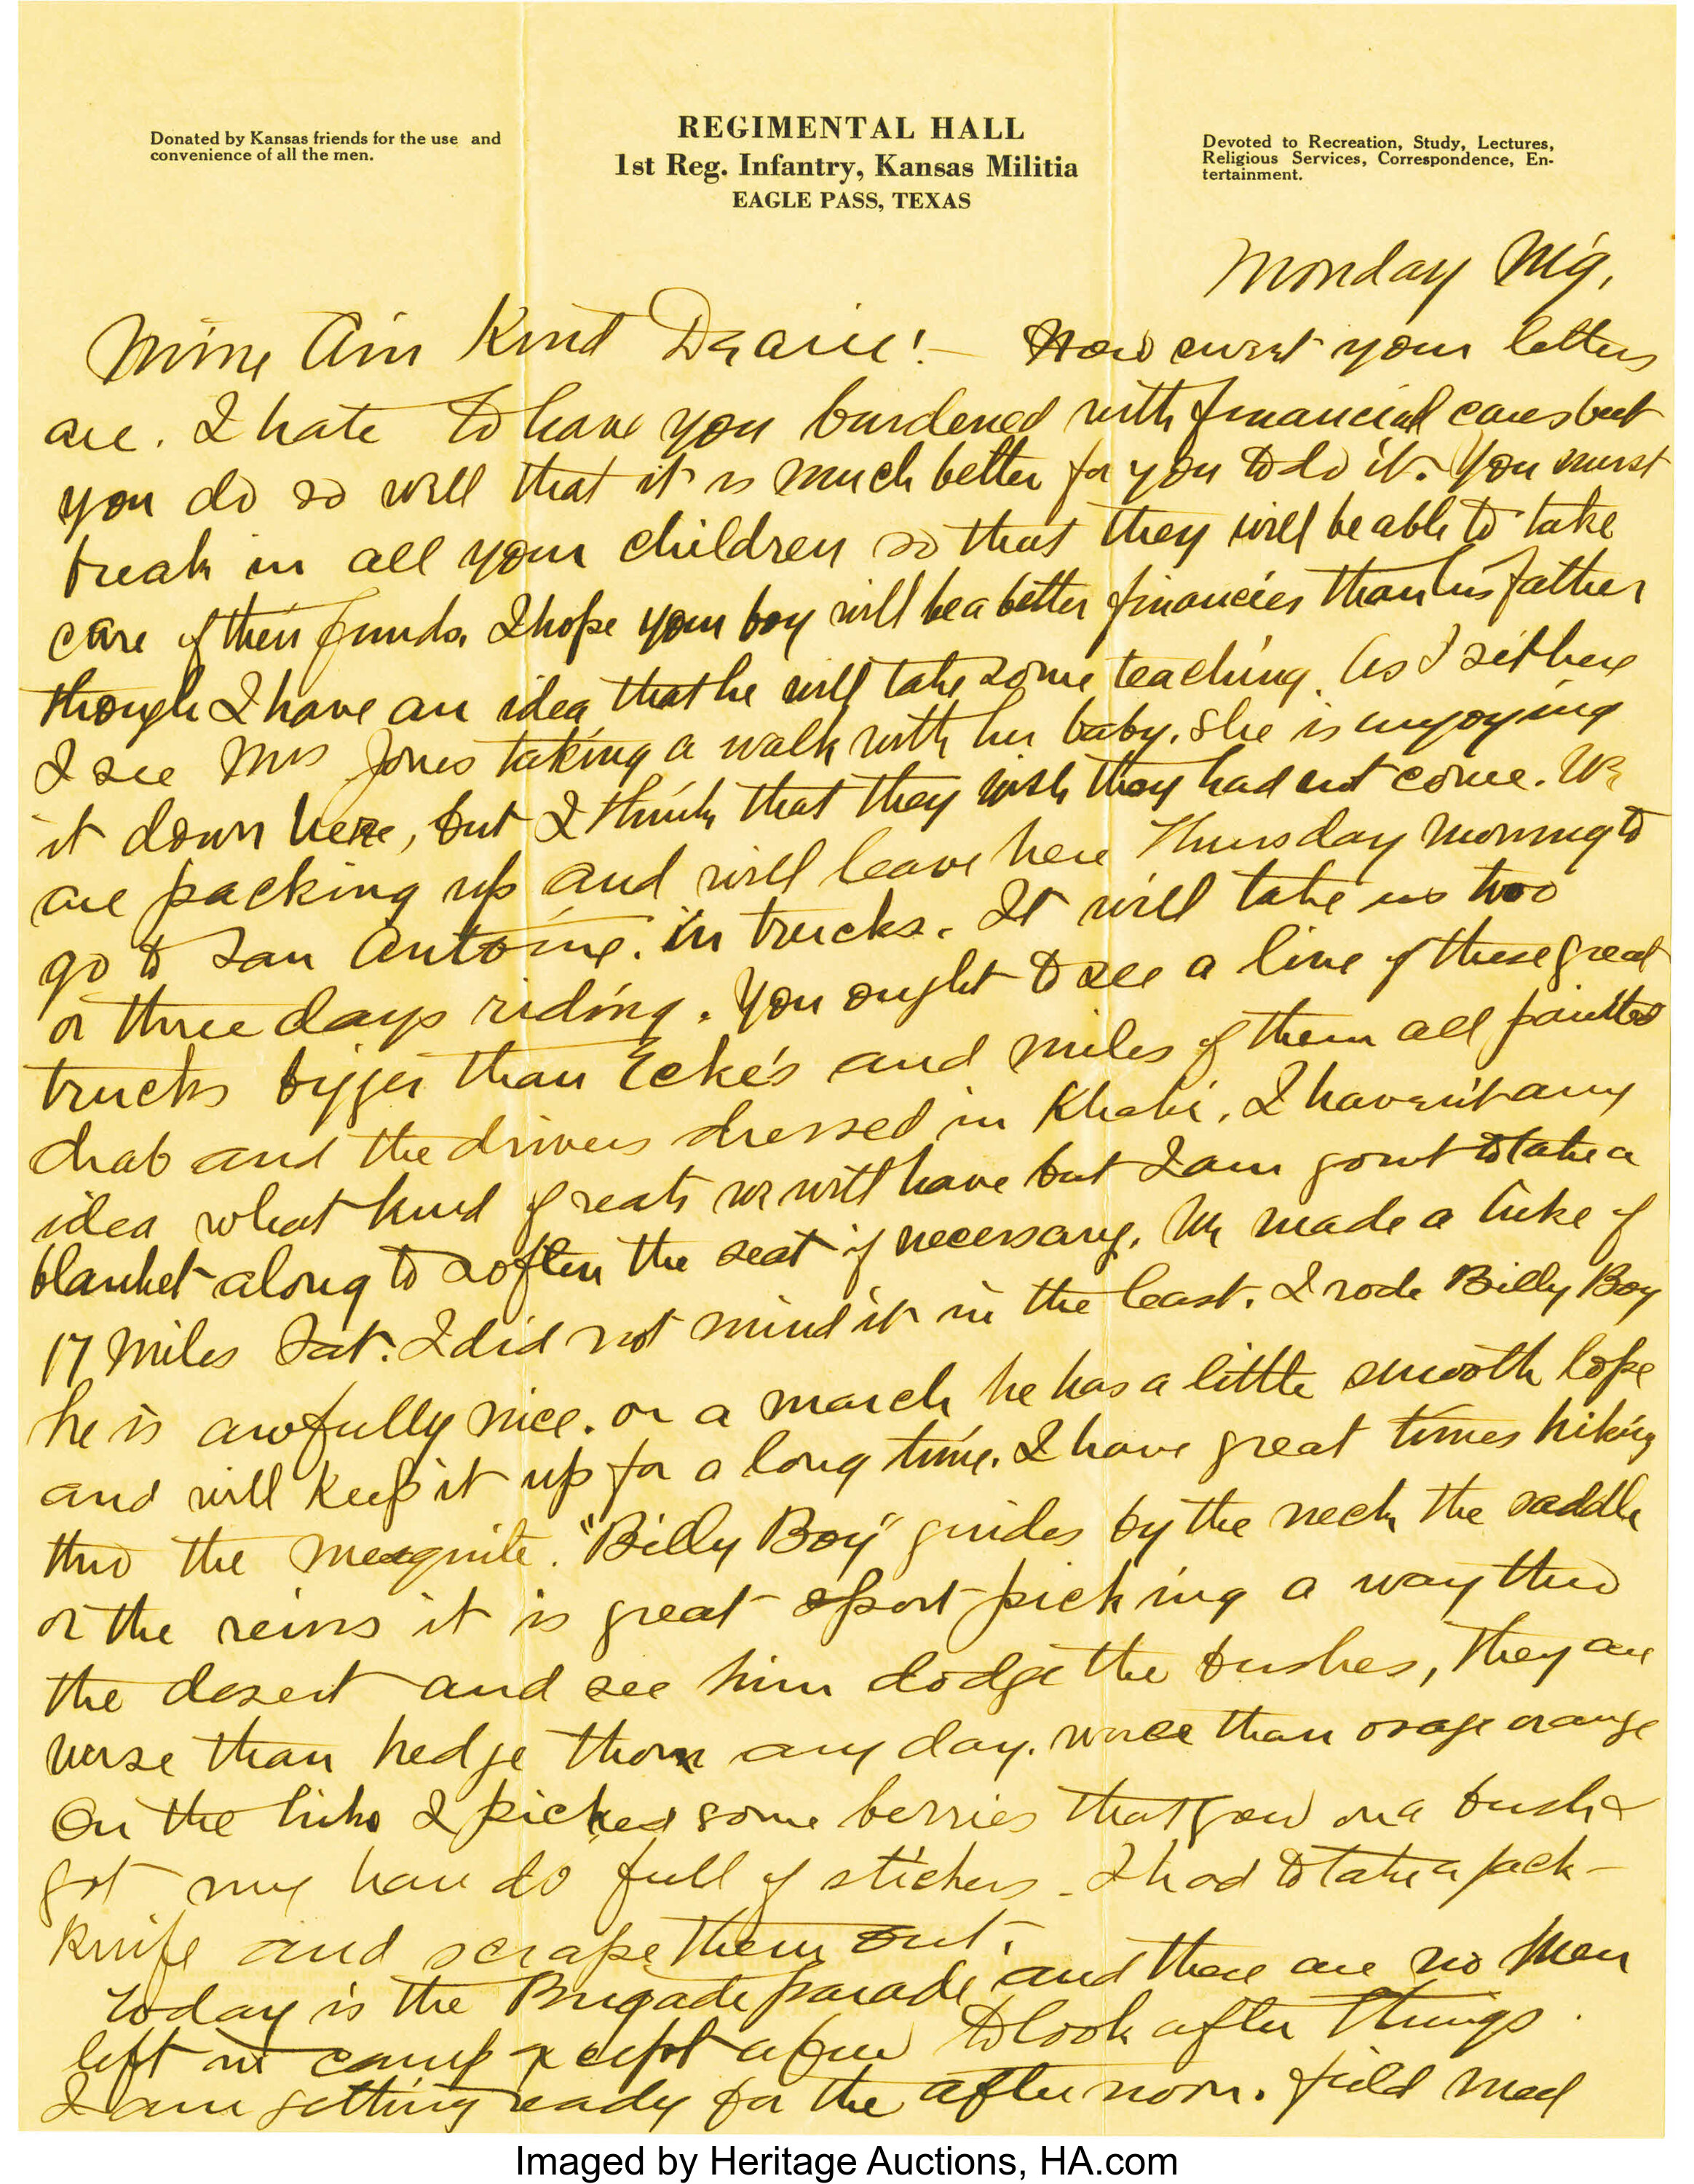 Donated by Kansas friends for the use and
convenience of all the men.
REGIMENTAL HALL
1st Reg. Infantry, Kansas Militia
EAGLE PASS, TEXAS
Devoted to Recreation, Study, Lectures,
Religious Services, Correspondence, En-
tertainment.
Monday M'g,
Mine Ain Kind Dearie! — How sweet your letters
are. I hate to have you burdened with financial cares but
you do so well that it is much better for you to do it. You must
break in all your children so that they will be able to take
care of their funds. I hope your boy will be a better financier than his father
though I have an idea that he will take some teaching. As I sit here
I see Mrs Jones taking a walk with her baby. She is enjoying
it down here, but I think that they wish they had not come. We
are packing up and will leave here Thursday morning to
go to San Antoine. in trucks. It will take us two
or three days riding. You ought to see a line of these great
trucks bigger than Ecke's and miles of them all painted
drab and the drivers dressed in Khaki. I haven't any
idea what kind of seats we will have but I am goin't to take a
blanket along to soften the seat if necessary. We made a hike of
17 miles Sat. I did not mind it in the least. I rode Billy Boy
he is awfully nice. on a march he has a little smooth lope
and will keep it up for a long time. I have great times hiking
thro the mesquite. "Billy Boy" guides by the neck the saddle
or the reins it is great sport picking a way thro
the desert and see him dodge the bushes, They are
worse than hedge thorn any day. worse than osage orange
On the hike I picked some berries that grow on a bush &
got my hands full of stickers. I had to take a jack-
knife and scrape them out.
Today is the Brigade parade and there are no men
left in camp except a few to look after things.
I am getting ready for the afternoon. field med
Imaged by Heritage Auctions, HA.com